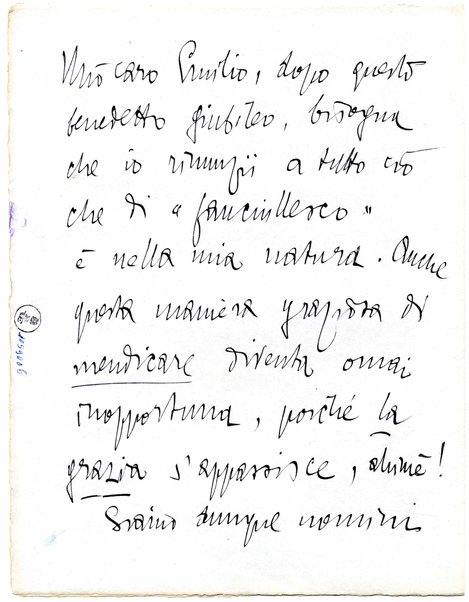 Mio caro Emilio, dopo questo
benedetto giubileo, bisogna
che io rinunzii a tutto ciò
che di "fanciullesco"
è nella mia natura. Anche
questa maniera graziosa di
mendicare diventa omai
inopportuna, poiché la
grazia s'appassisce, ahimè!
Siamo dunque uomini